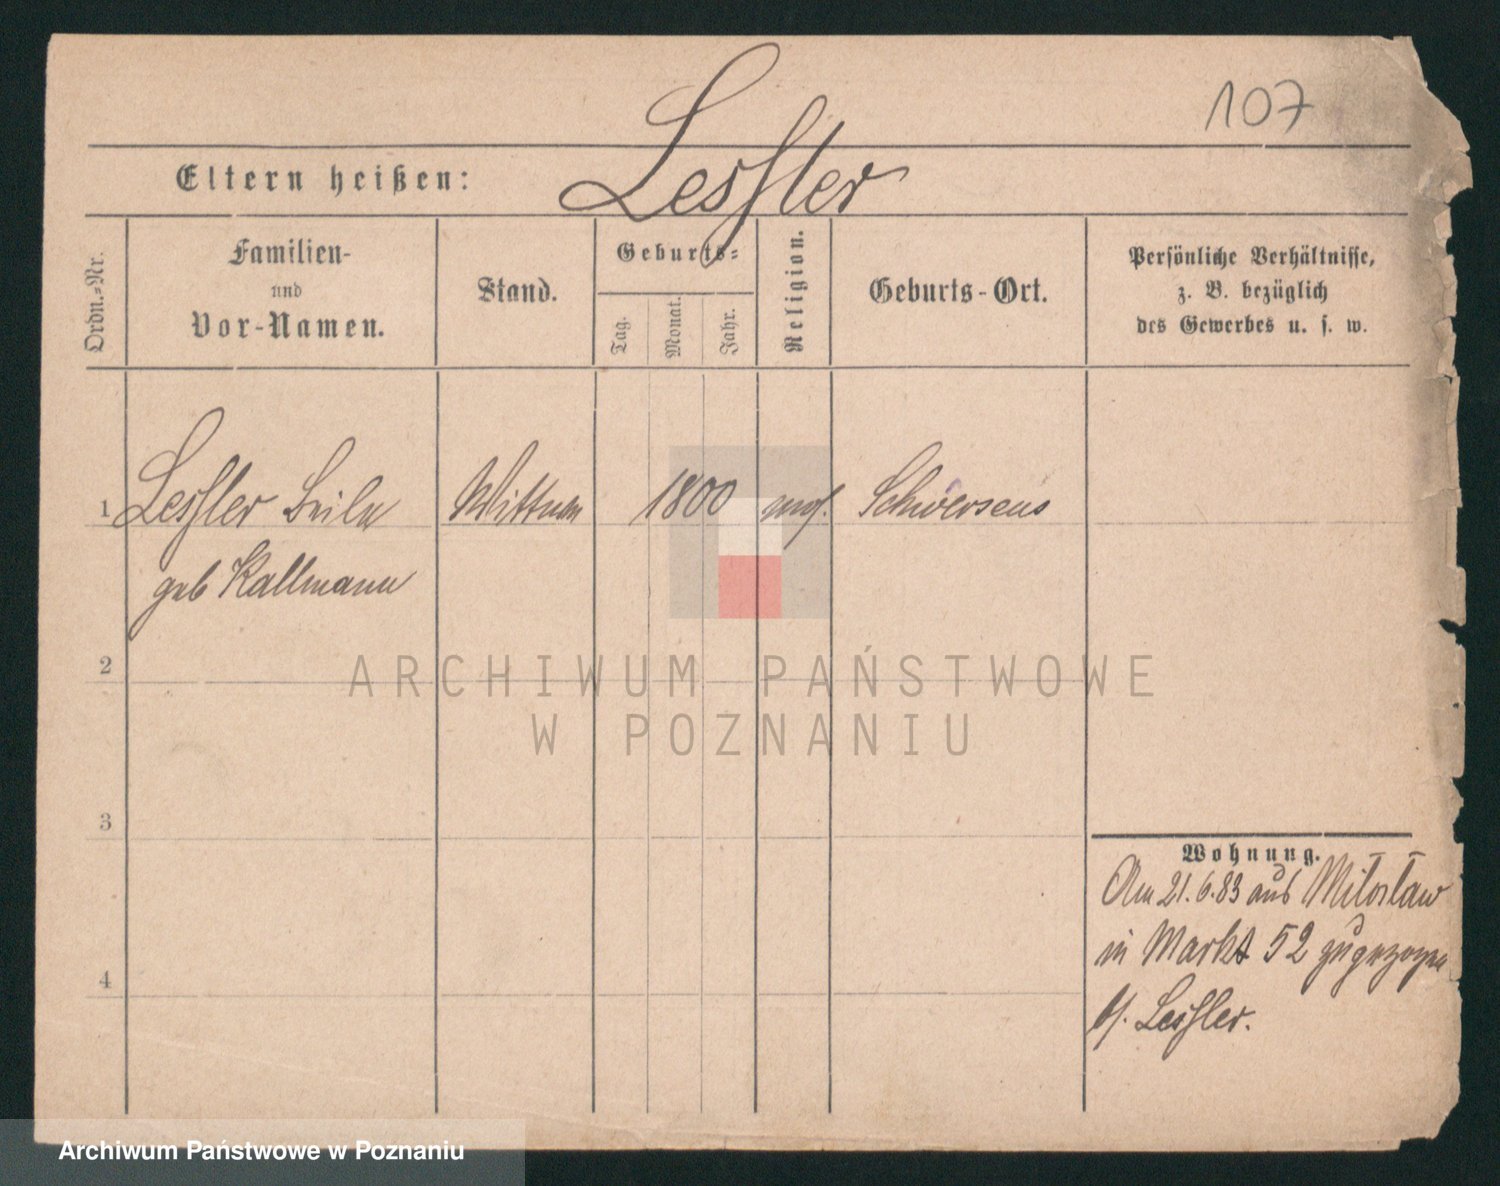 107
Lessler
Eltern heißen:
Ordn.-Nr.
Familien-
und
Vor-Namen.
Stand.
Geburts-
Tag.
Monat.
Jahr.
Religion.
Geburts-Ort.
Persönliche Verhältnisse,
z. B. bezüglich
des Gewerbes u. s. w.
1 Lessler Beila Wittwe 1800 mos. Schwersens
geb Kallmann
2
3
4
Wohnung.
Am 21.6.83 aus Miloslaw
in Markt 52 zugezogen
b/. Lessler.
ARCHIWUM PAŃSTWOWE
W POZNANIU
Archiwum Państwowe w Poznaniu